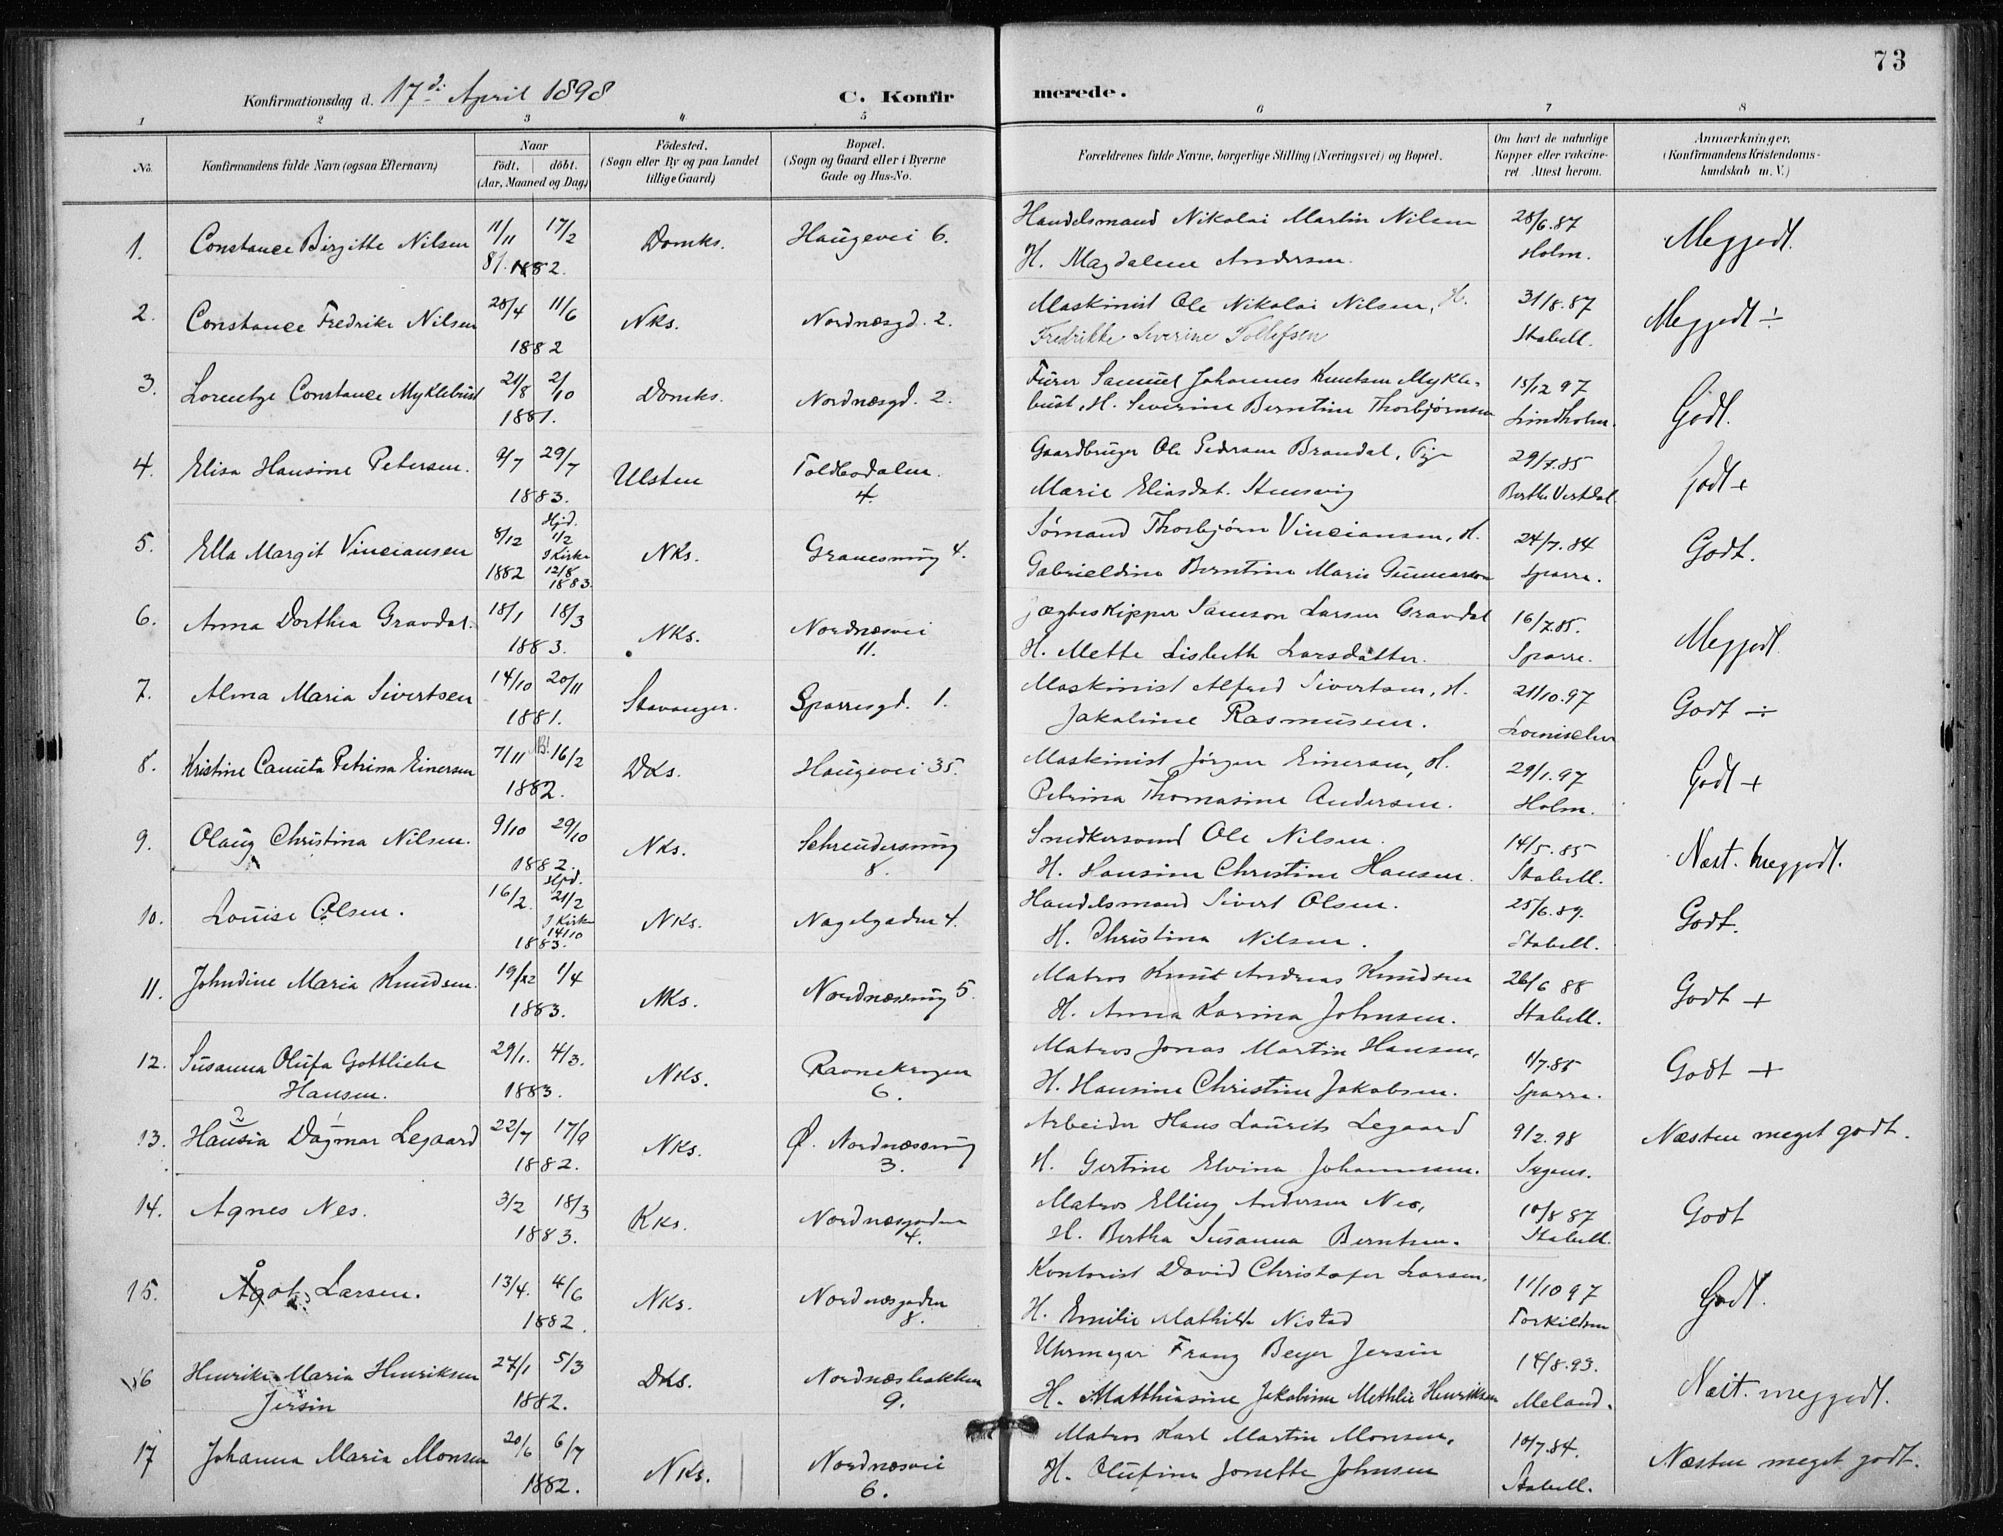 73
Konfirmationsdag d. 17de April 1898 C. Konfirmerede.
1 2 3 4 5 6 7 8
No. Konfirmandens fulde Navn (ogsaa Efternavn) Naar født. døbt. (Aar, Maaned og Dag) Fødested. (Sogn eller By og paa Landet tillige Gaard) Bopæl. (Sogn og Gaard eller i Byerne Gade og Hus-No. Forældrenes fulde Navne, borgerlige Stilling (Næringsvei) og Bopæl. Om havt de naturlige Kopper eller vakcineret. Attest herom. Anmærkninger, (Konfirmandens Kristendomskundskab m. V.)
1. Constance Birgitte Nilsen 11/11 81. 17/2 1882. Domks. Haugevei 6. Handelsmand Nikolai Martin Nilsen 28/6.87 Meggodt.
H. Magdalene Andersen. Holm.
2. Constance Fredrikke Nilsen 28/4 11/6 Nks. Nordnæsgd. 2. Maskinist Ole Nikolai Nilsen, H. 31/8.87 Meggodt ÷
1882 Fredrikke Severine Tollefsen Stabell.
3. Lorentze Constance Myklebust 21/8 2/10 Domks. Nordnæsgd. 2. Furer Samuel Johannes Knutsen Mykle- 15/12 97 Godt.
1881. bust, H. Severine Berntine Thorbjørnsen Lindholm.
4. Elisa Hansine Petersen. 9/7 29/7 Ulsten Toldbodalm. Gaardbruger Ole Pedersen Brandal, Pige 29/7.85 Godt +
1883. 4. Marie Eliasdat. Stensvig Berthe Vestdal
5. Ella Margit Vinciansen 8/12 Hjd. 1/2 Nks. Granesmug 4. Sømand Thorbjørn Vinciansen, H. 24/7.84 Godt.
1882 I Kirke 12/8 1883. Gabrieldine Berntine Marie Gunnarson Sparre.
6. Anna Dorthea Gravdal. 18/1 18/3 Nks. Nordnæsvei Jægteskipper Samson Larsen Gravdal 16/7.85. Meggodt.
1883. 11. H. Mette Lisbeth Larsdatter. Sparre.
7. Alma Maria Sivertsen 14/10 20/11 Stavanger. Sparresgd. 1. Maskinist Alfred Sivertsen, H. 21/10.97 Godt ÷
1881. Jakobine Rasmussen.
8. Kristine Camita Petrina Einersen 7/11 NB! 16/2 Dks. Haugevei 35. Maskinist Jørgen Einersen, H. 29/1.97 Godt +
1882. Petrina Thomasine Andersen. Holm.
9. Olaug Christina Nilsen. 9/10 29/10 Nks. Schreudersmug Snedkersvend Ole Nilsen. 14/5.85 Næst. meggodt.
1882. 8. H. Hansine Christine Hansen. Stabell.
10. Louise Olsen. 16/2 Hjd. 21/2 Nks. Nagelgaden 4. Handelsmand Sivert Olsen. 25/6.89. Godt.
I Kirke 14/10 1883. H. Christina Nilsen. Stabell.
11. Johndine Maria Knudsen. 19/12 1/4 Nks. Nordnæssmug 5. Matros Knut Andreas Knudsen 26/6 88 Godt +
1883. H. Anna Karina Johnsen. Stabell.
12. Susanna Olufa Gottliebe 29/1. 4/3. Nks. Ravnekrogen Matros Jonas Martin Hansen, 1/7.85 Godt +
Hansen. 1883. 6. H. Hansine Christine Jakobsen. Sparre.
13. Hansia Dagmar Legaard 22/7 17/9 Nks. Ø. Nordnæssmug Arbeider Hans Laurits Legaard 9/2.98 Næsten meget godt.
1882. 3. H. Gertine Elvina Johannesen. Sygens.
14. Agnes Nes. 3/2 18/3 Kks. Nordnæsgaden Matros Elling Andersen Nes, 10/8 87 Godt
1883. 4. H. Bertha Susanna Berntsen. Stabell.
15. Ågot Larsen. 13/4. 4/6 Nks. Nordnæsgaden Kontorist David Christofer Larsen, 11/10 97 Godt.
1882. 8. H. Emilie Mathilde Nistad Torkildsen
16 Henrikke Maria Henriksen 27/1 5/3 Dks. Nordnæsbakken Uhrmager Franz Beyer Jersin 14/8.93. Næst. meggodt.
Jersin 1882. 9. H. Matthiasine Jakobine Methlie Henriksen Meland.
17 Johanna Maria Monsen 20/6 6/7 Nks. Nordnæsvei Matros Karl Martin Monsen, 10/7.84. Næsten meget godt.
1882. 6. H. Olufine Jonette Johnsen Stabell.